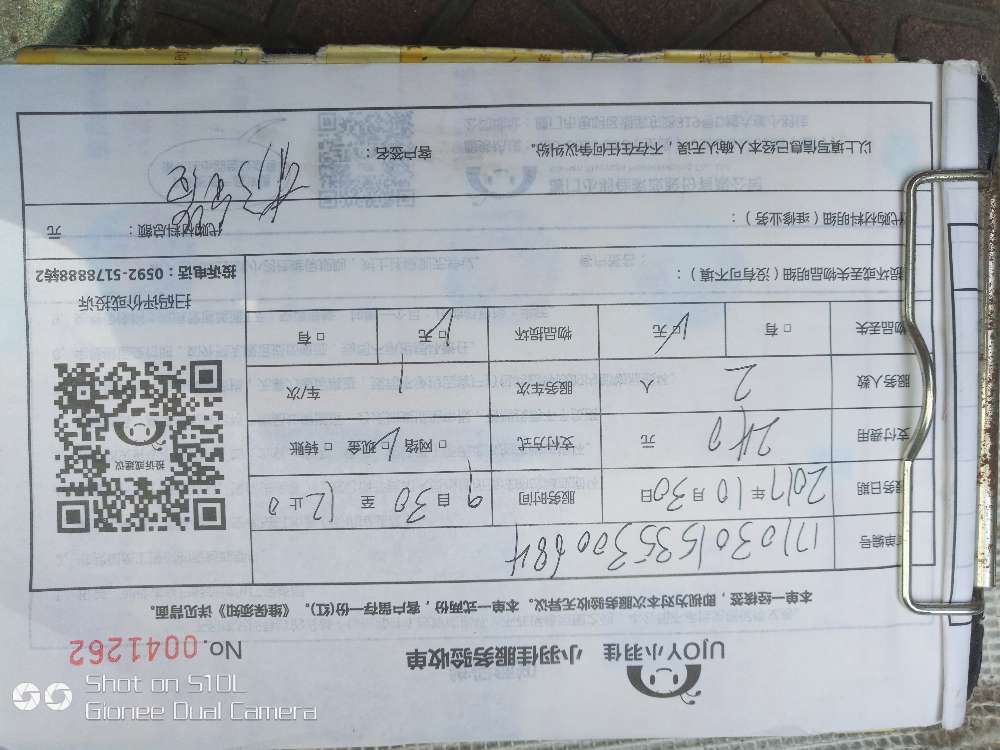 UJOY小羽佳 小羽佳服务验收单 No. 0041262
本单一经核签，即视为对本次服务验收无异议。本单一式两份，客户留存一份(红)。《维保须知》详见背面。
单编号 171030153530068
服务日期 2017年10月30日 服务时间 9 自30 至 12止0
支付费用 240 元 支付方式 □网络 □现金 □转账
服务人数 2 人 服务车次 1 车/次
物品丢失 □有 □无 物品损坏 □无 □有
损坏或丢失物品明细（没有可不填）：
投诉或建议
扫码评价或投诉
投诉电话：0592-5178888转2
代购材料明细（维修业务）： 代购材料总额： 元
以上填写信息已经本人确认无误，不存在任何争议纠纷。 客户签名：
Shot on S10L
Gionee Dual Camera